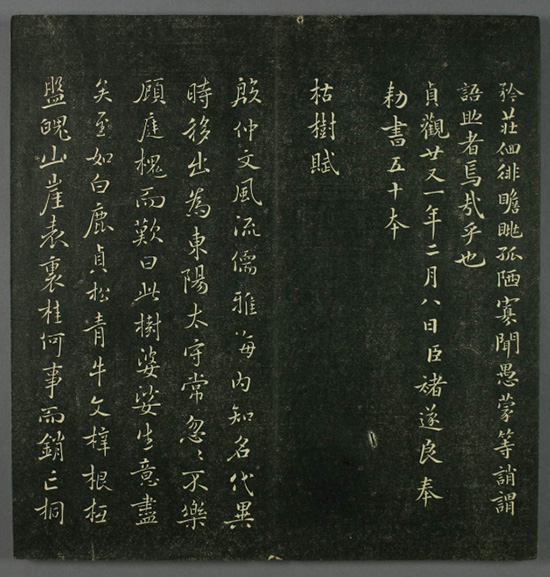 矜莊佪徘瞻眺孤陋寡聞愚蒙等誚謂
語助者焉哉乎也
貞觀廿又一年二月八日臣褚遂良奉
勅書五十本
枯樹賦
殷仲文風流儒雅海內知名代異
時移出為東陽太守常忽〻不樂
顧庭槐而歎曰此樹婆娑生意盡
矣至如白鹿貞松青牛文梓根柢
盤魄山崖表裏桂何事而銷亡桐